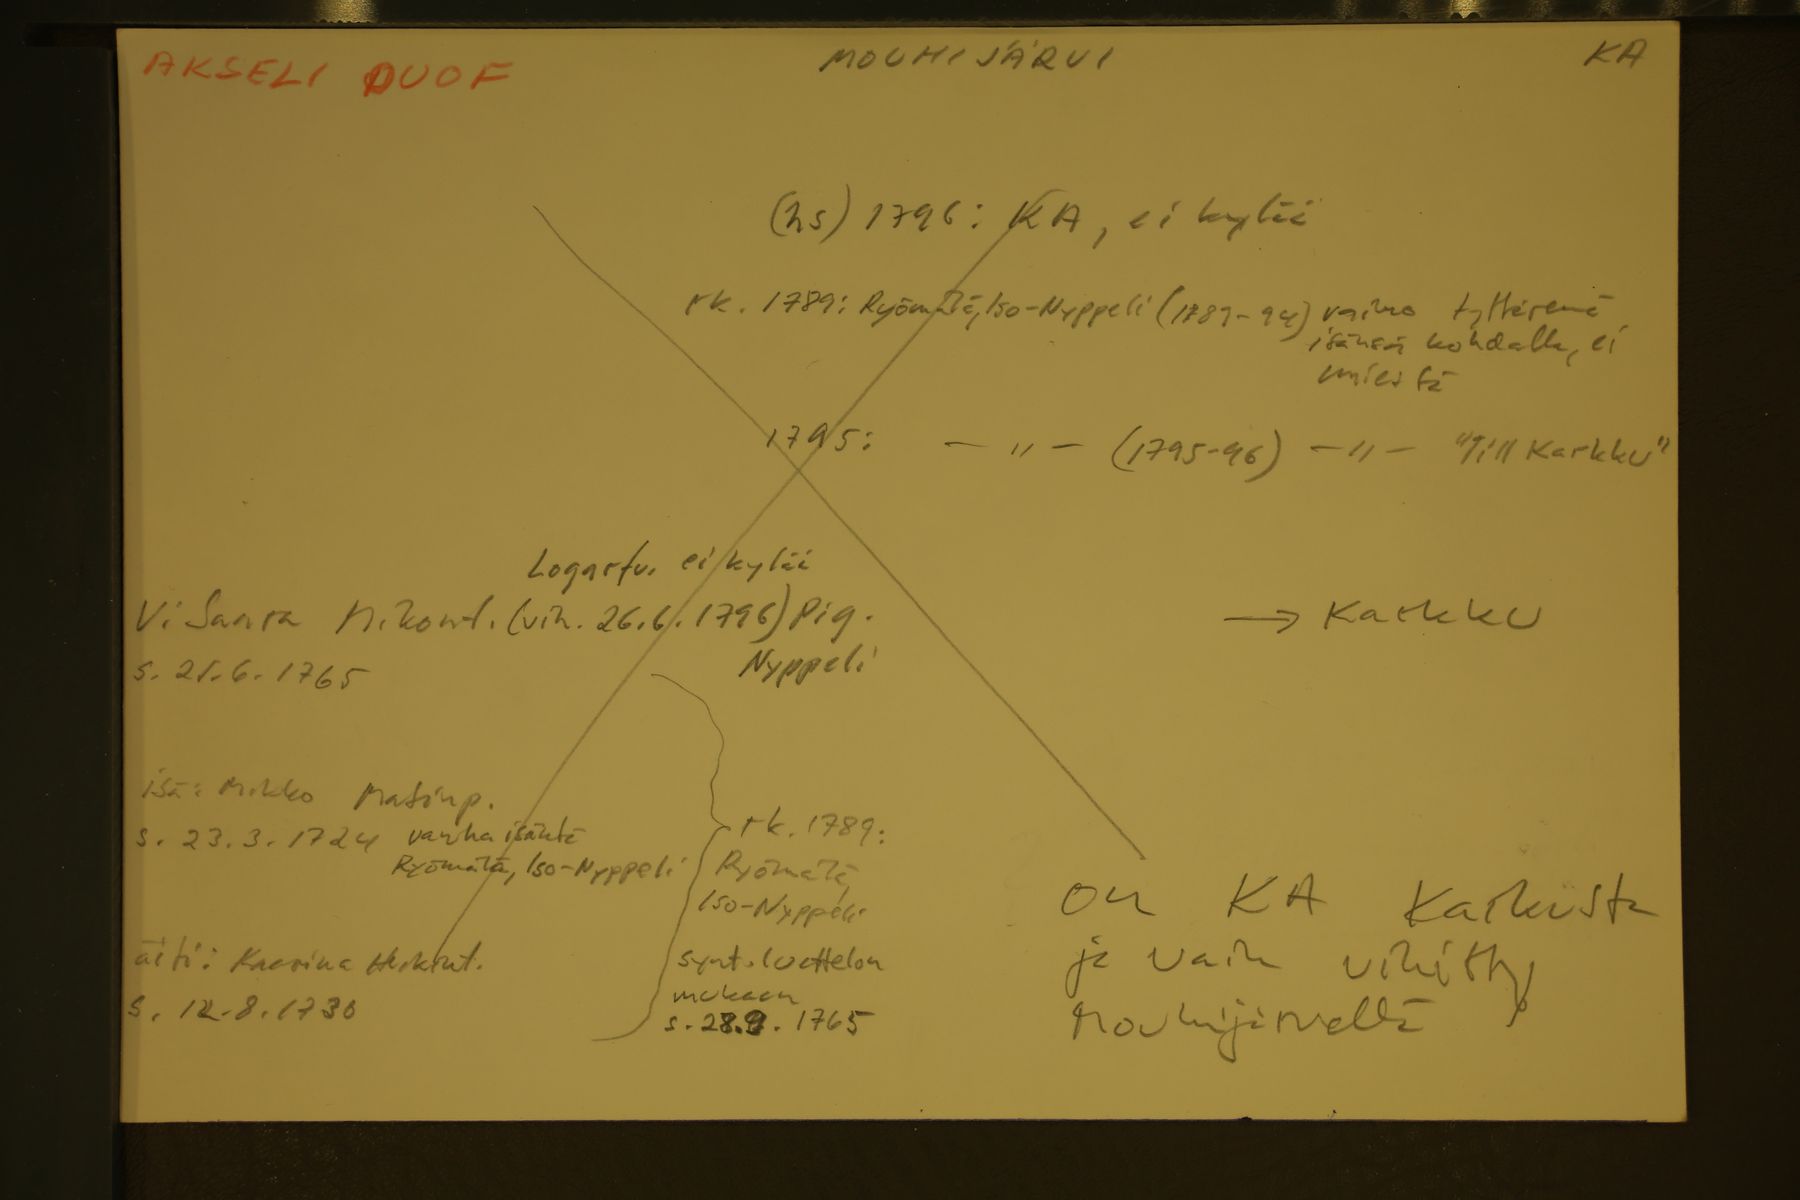 AKSELI DUOF
MOUHIJÄRVI
KA
(hs) 1796: KA, ei kylää
rk. 1789: Ryömälä, Iso-Nyppeli (1789-94) vaimo tyttärenä
isänsä kohdalla, ei
miestä
1795: — " — (1795-96) — " — "Till Karkku"
Logartu. ei kylää
V: Saara Mikont. (vih. 26.6.1796) Pig.
Nyppeli
→ Karkku
s. 21.6.1765
isä: Mikko Matinp.
s. 23.3.1724 vanha isäntä
Ryömälä, Iso-Nyppeli
äiti: Kaarina Heikint.
s. 12.8.1730
rk. 1789:
Ryömälä,
Iso-Nyppeli
synt.luettelon
mukaan
s. 28.9.1765
on KA Karkusta
ja vain vihitty
Mouhijärvellä